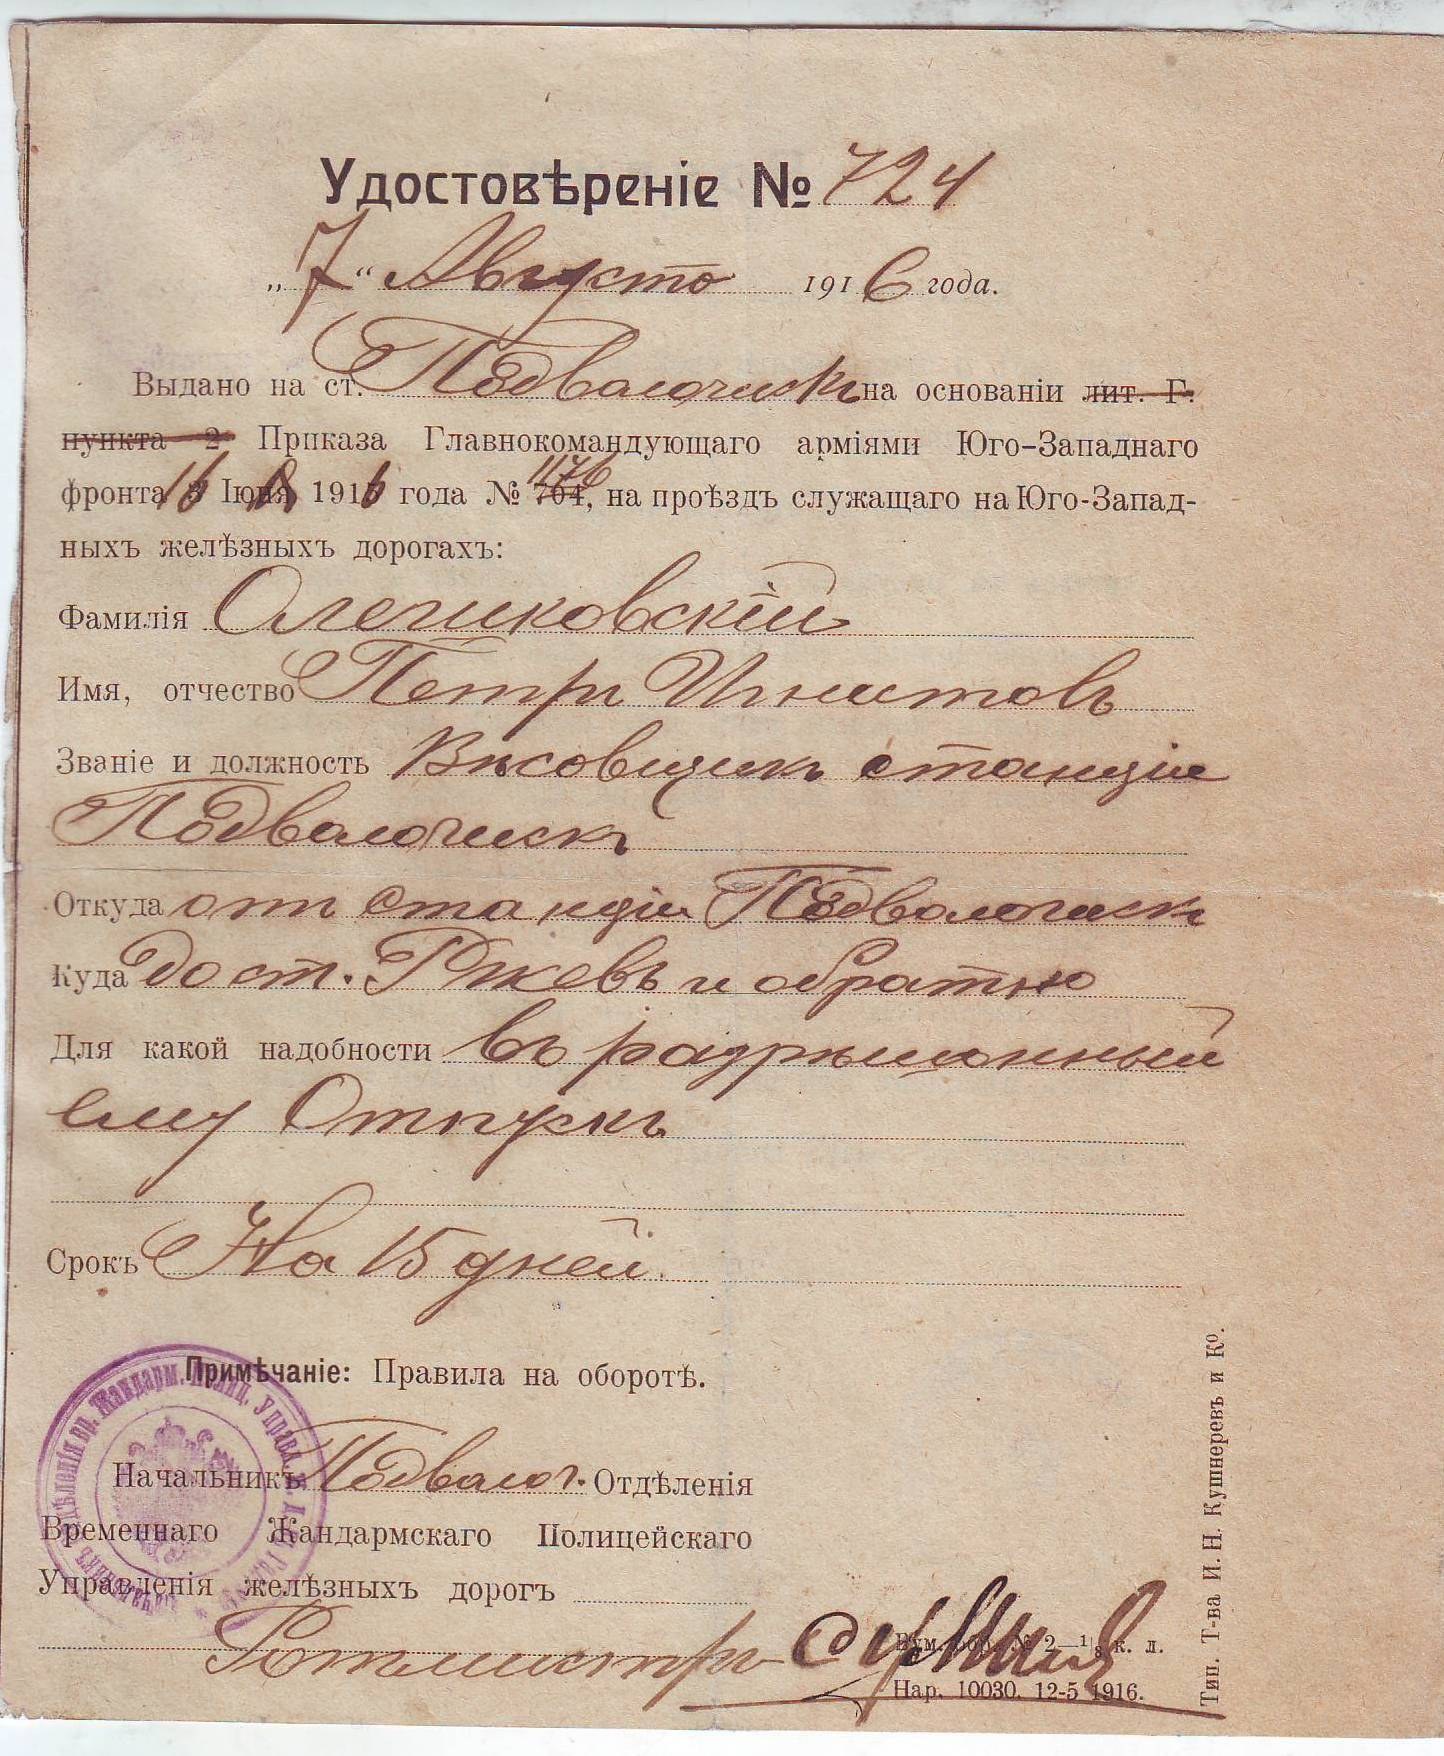 Удостовѣреніе № 724
„7“ Августо 1916 года.
Выдано на ст. Подволочискъ на основаніи лит. Г.
пункта 2 Приказа Главнокомандующаго арміями Юго-Западнаго
фронта 16 Іюня 1916 года № 704, 1176 на проѣздъ служащаго на Юго-Запад-
ныхъ желѣзныхъ дорогахъ:
Фамилія Олешковскій
Имя, отчество Петръ Игнатовъ
Званіе и должность Вѣсовщикъ станціи
Подволочискъ
Откуда отъ станціи Подволочискъ
Куда до ст. Ржевъ и обратно
Для какой надобности въ разрѣшонный
ему Отпускъ
Срокъ На 15 дней.
Примѣчаніе: Правила на оборотѣ.
Начальникъ Подволоч. Отдѣленія
Временнаго Жандармскаго Полицейскаго
Управленія желѣзныхъ дорогъ
Ротмистръ
Нар. 10030. 12-5 1916.
Тип. Т-ва И. Н. Кушнеревъ и Ко.